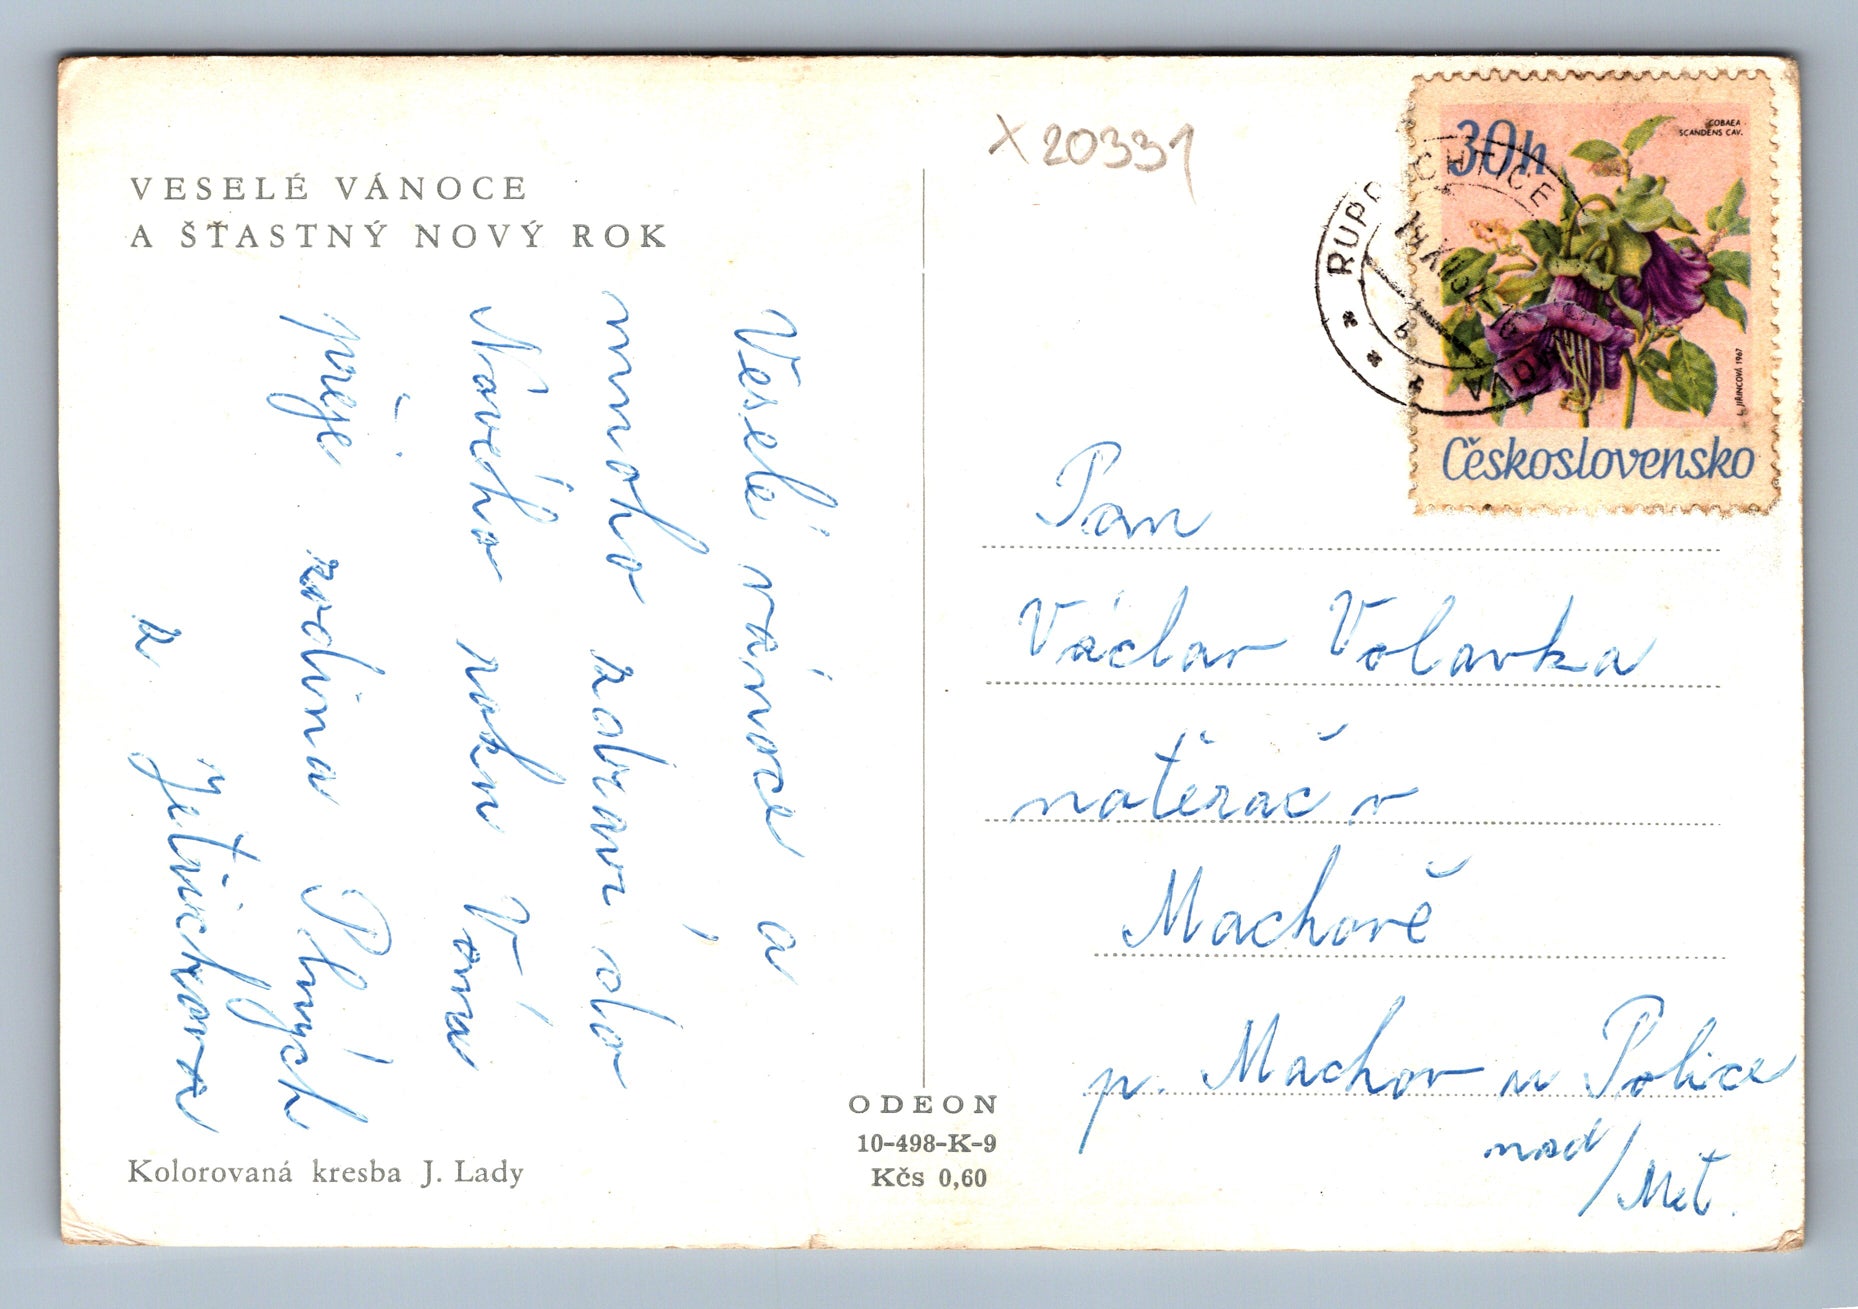 VESELÉ VÁNOCE
A ŠŤASTNÝ NOVÝ ROK
Veselé vánoce a
mnoho zdraví do
Nového roku Vám
přeje rodina Plných
z Jetřichova
Kolorovaná kresba J. Lady
ODEON
10-498-K-9
Kčs 0,60
X 20331
30h
COBAEA
SCANDENS CAV.
JIŘINCOVÁ 1967
Československo
RUPRECHTICE
Pan
Václav Volavka
natěrač v
Machově
p. Machov u Police
nad/Met.